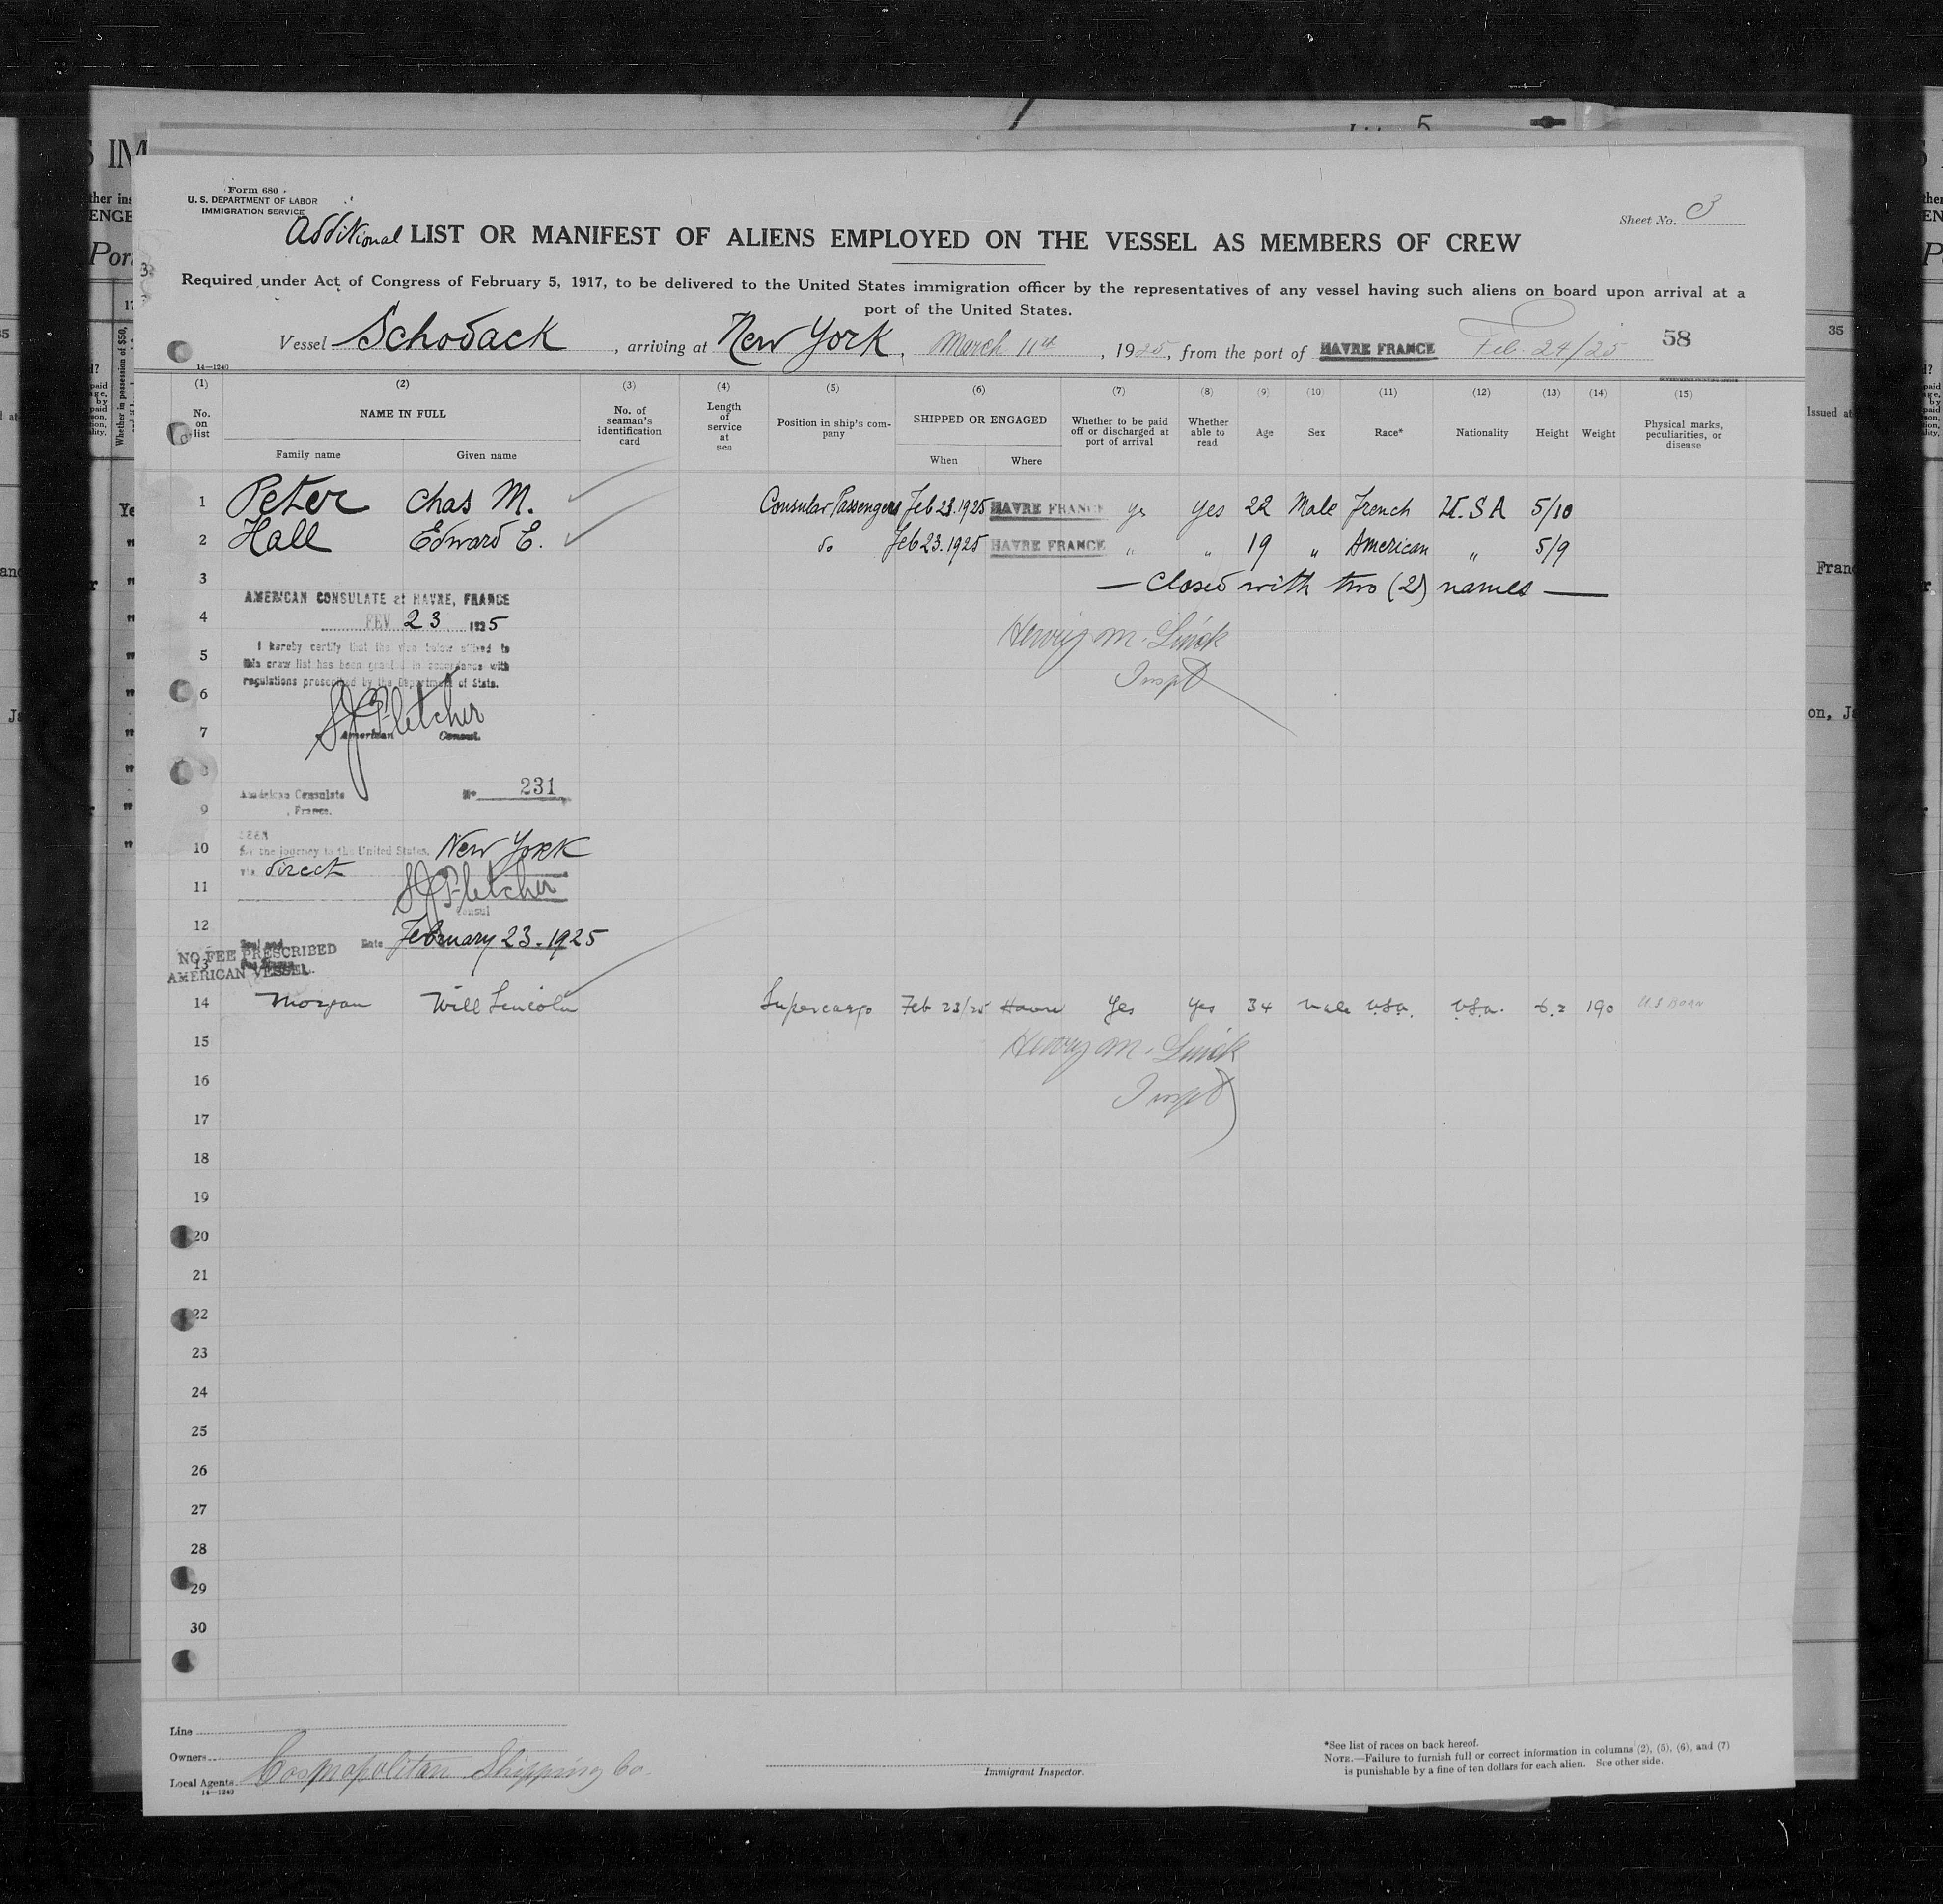 Form 680
U. S. DEPARTMENT OF LABOR
IMMIGRATION SERVICE
Sheet No. 3
Additional LIST OR MANIFEST OF ALIENS EMPLOYED ON THE VESSEL AS MEMBERS OF CREW
Required under Act of Congress of February 5, 1917, to be delivered to the United States immigration officer by the representatives of any vessel having such aliens on board upon arrival at a
port of the United States.
Vessel Schodack, arriving at New York, March 11th, 1925, from the port of HAVRE FRANCE Feb. 24/25 58
14—1240
(1) (2) (3) (4) (5) (6) (7) (8) (9) (10) (11) (12) (13) (14) (15)
No. on list NAME IN FULL Family name Given name No. of seaman's identification card Length of service at sea Position in ship's company SHIPPED OR ENGAGED When Where Whether to be paid off or discharged at port of arrival Whether able to read Age Sex Race* Nationality Height Weight Physical marks, peculiarities, or disease
1 Peter Chas M. Consular Passengers Feb 23.1925 HAVRE FRANCE yes Yes 22 Male French U.S A 5/10
2 Hall Edward E. do Feb 23.1925 HAVRE FRANCE " " 19 " American " 5/9
3 — Closed with two (2) names —
AMERICAN CONSULATE at HAVRE, FRANCE
4 FEV 23 1925
Henry M.
5 I hereby certify that the visa below affixed to
this crew list has been granted in accordance with
regulations prescribed by the Department of State.
Inspt
6
S J Fletcher
7 American Consul.
8
American Consulate No 231
9 , France.
SEEN
10 for the journey to the United States, New York
via direct
11 S J Fletcher
Consul
12
Seal and Date February 23.1925
13 NO FEE PRESCRIBED
AMERICAN VESSEL.
14 Morgan Will Lincoln Supercargo Feb 23/25 Havre Yes Yes 34 Male U.S.A. U.S.A. 6.2 190 U.S Born
15 Henry M.
16 Inspt
17
18
19
20
21
22
23
24
25
26
27
28
29
30
Line
Owners
Local Agents Cosmopolitan Shipping Co.
14—1240
Immigrant Inspector.
*See list of races on back hereof.
NOTE.—Failure to furnish full or correct information in columns (2), (5), (6), and (7)
is punishable by a fine of ten dollars for each alien. See other side.